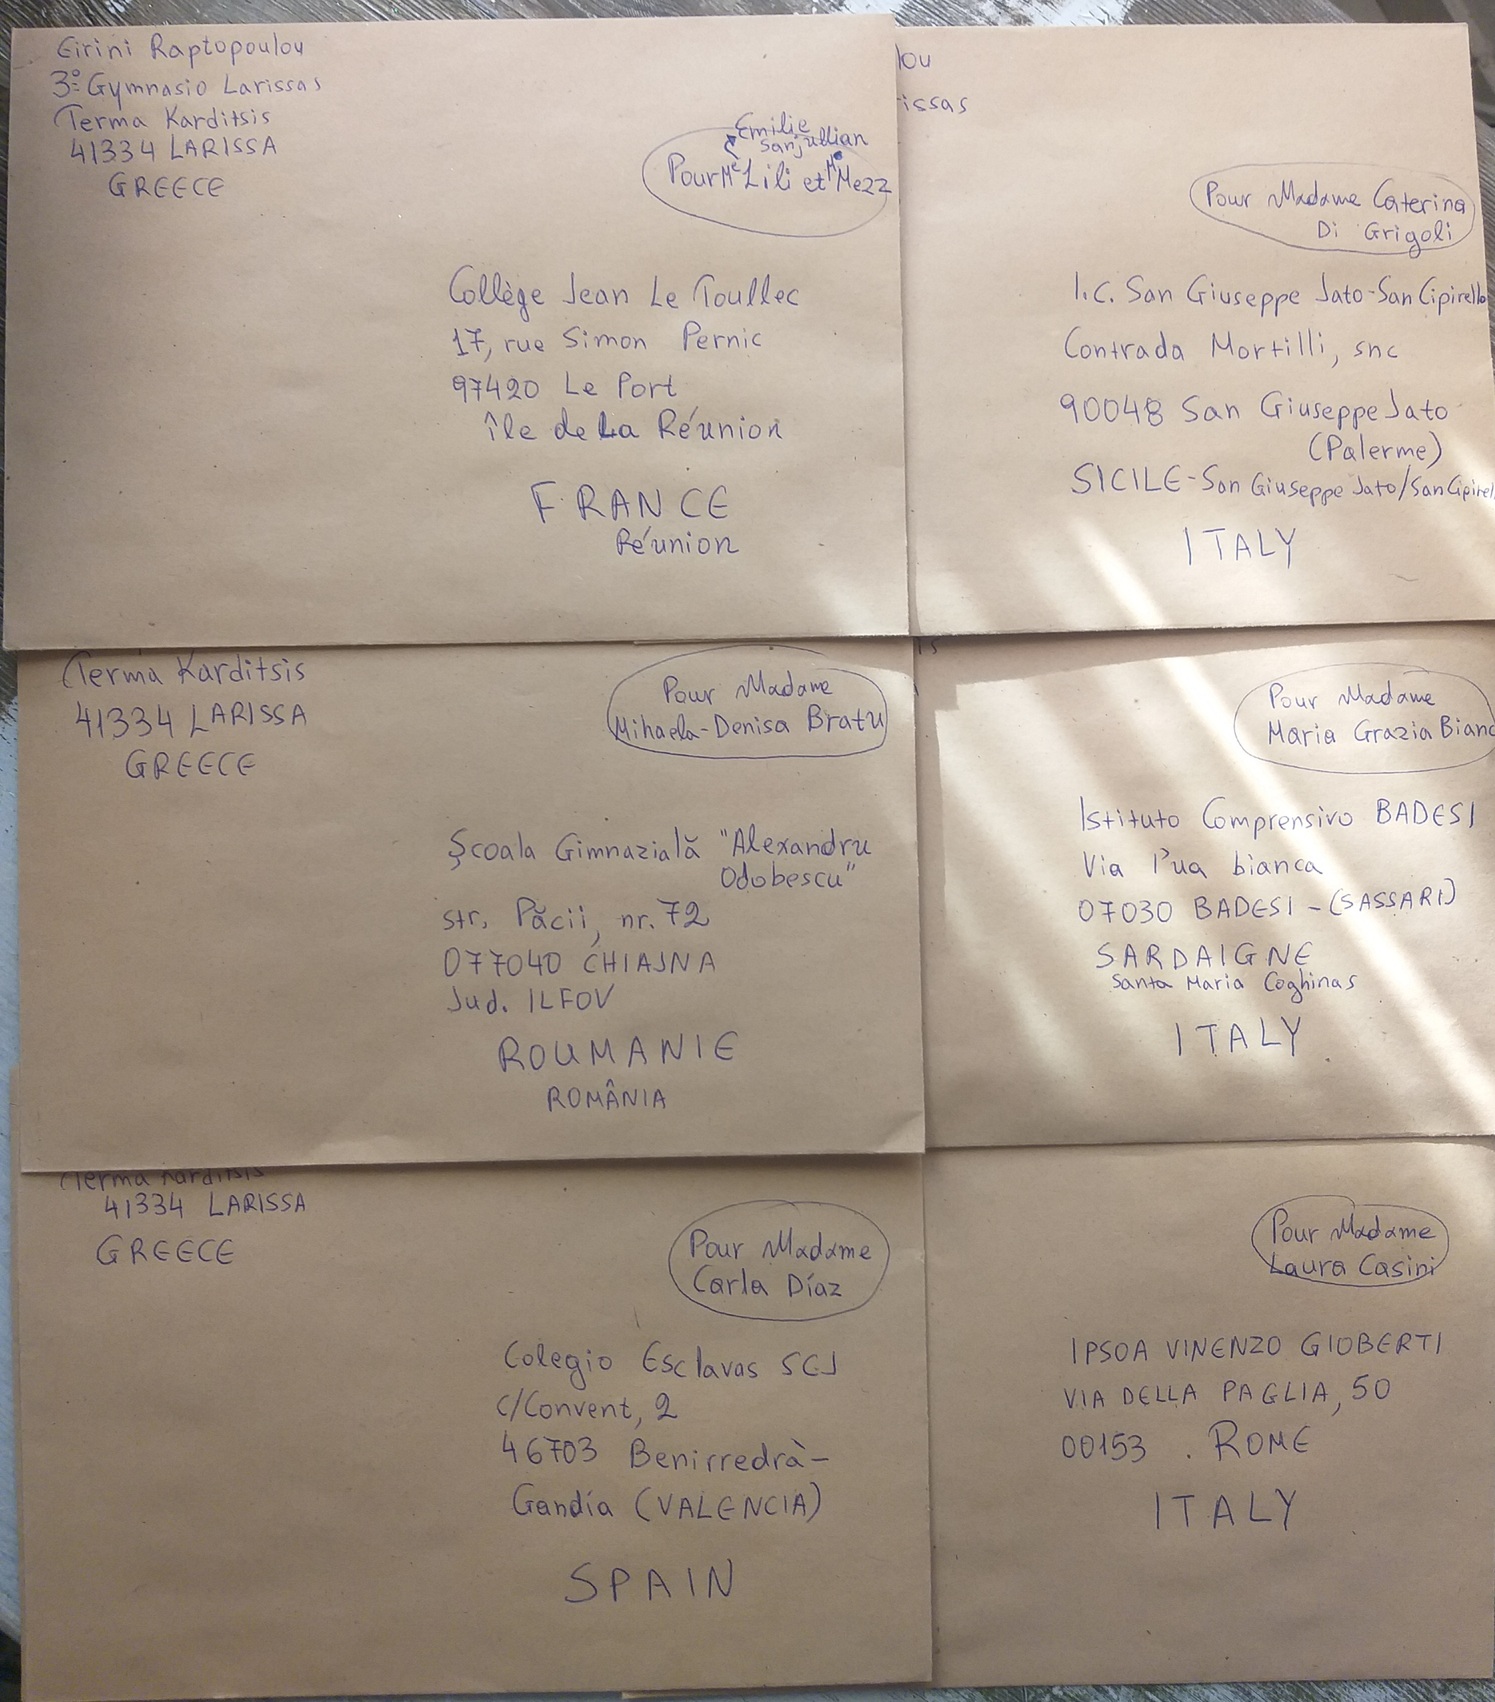 Eirini Raptopoulou
3º Gymnasio Larissas
Terma Karditsis
41334 LARISSA
GREECE
Emilie
Sanjullian
Pour Me Lili et Me Mezz
Collège Jean Le Toullec
17, rue Simon Pernic
97420 Le Port
île de La Réunion
FRANCE
Réunion
lou
rissas
Pour Madame Caterina
Di Grigoli
I.C. San Giuseppe Jato-San Cipirello
Contrada Mortilli, snc
90048 San Giuseppe Jato
(Palerme)
SICILE-San Giuseppe Jato/San Cipirel
ITALY
Terma Karditsis
41334 LARISSA
GREECE
Pour Madame
Mihaela-Denisa Bratu
Școala Gimnazială "Alexandru
Odobescu"
str. Păcii, nr. 72
077040 CHIAJNA
Jud. ILFOV
ROUMANIE
ROMÂNIA
is
Pour Madame
Maria Grazia Bianc
Istituto Comprensivo BADESI
Via l'ua bianca
07030 BADESI - (SASSARI)
SARDAIGNE
Santa Maria Coghinas
ITALY
Terma Karditsis
41334 LARISSA
GREECE
Pour Madame
Carla Díaz
Colegio Esclavas SCJ
c/Convent, 2
46703 Benirredrà-
Gandía (VALENCIA)
SPAIN
Pour Madame
Laura Casini
IPSOA VINENZO GIOBERTI
VIA DELLA PAGLIA, 50
00153 . ROME
ITALY